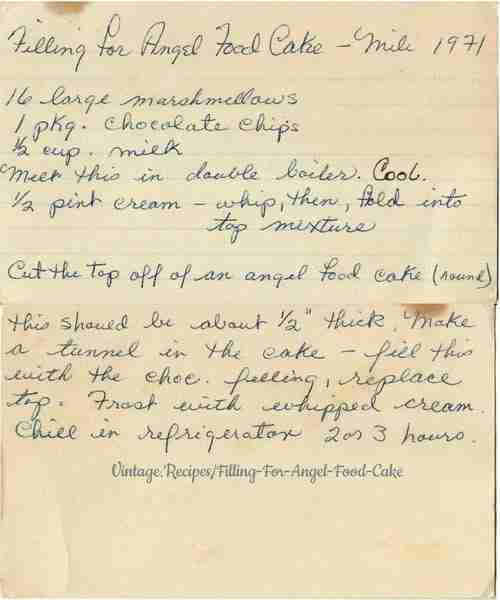 Filling For Angel Food Cake - Mili 1971
16 large marshmellows
1 pkg. chocolate chips
1/2 cup. milk
Melt this in double boiler. Cool.
1/2 pint cream - whip, then, fold into
top mixture
Cut the top off of an angel food cake (round)
this should be about 1/2" thick. Make
a tunnel in the cake - fill this
with the choc. filling, replace
top. Frost with whipped cream.
Chill in refrigerator 2 or 3 hours.
Vintage.Recipes/Filling-For-Angel-Food-Cake